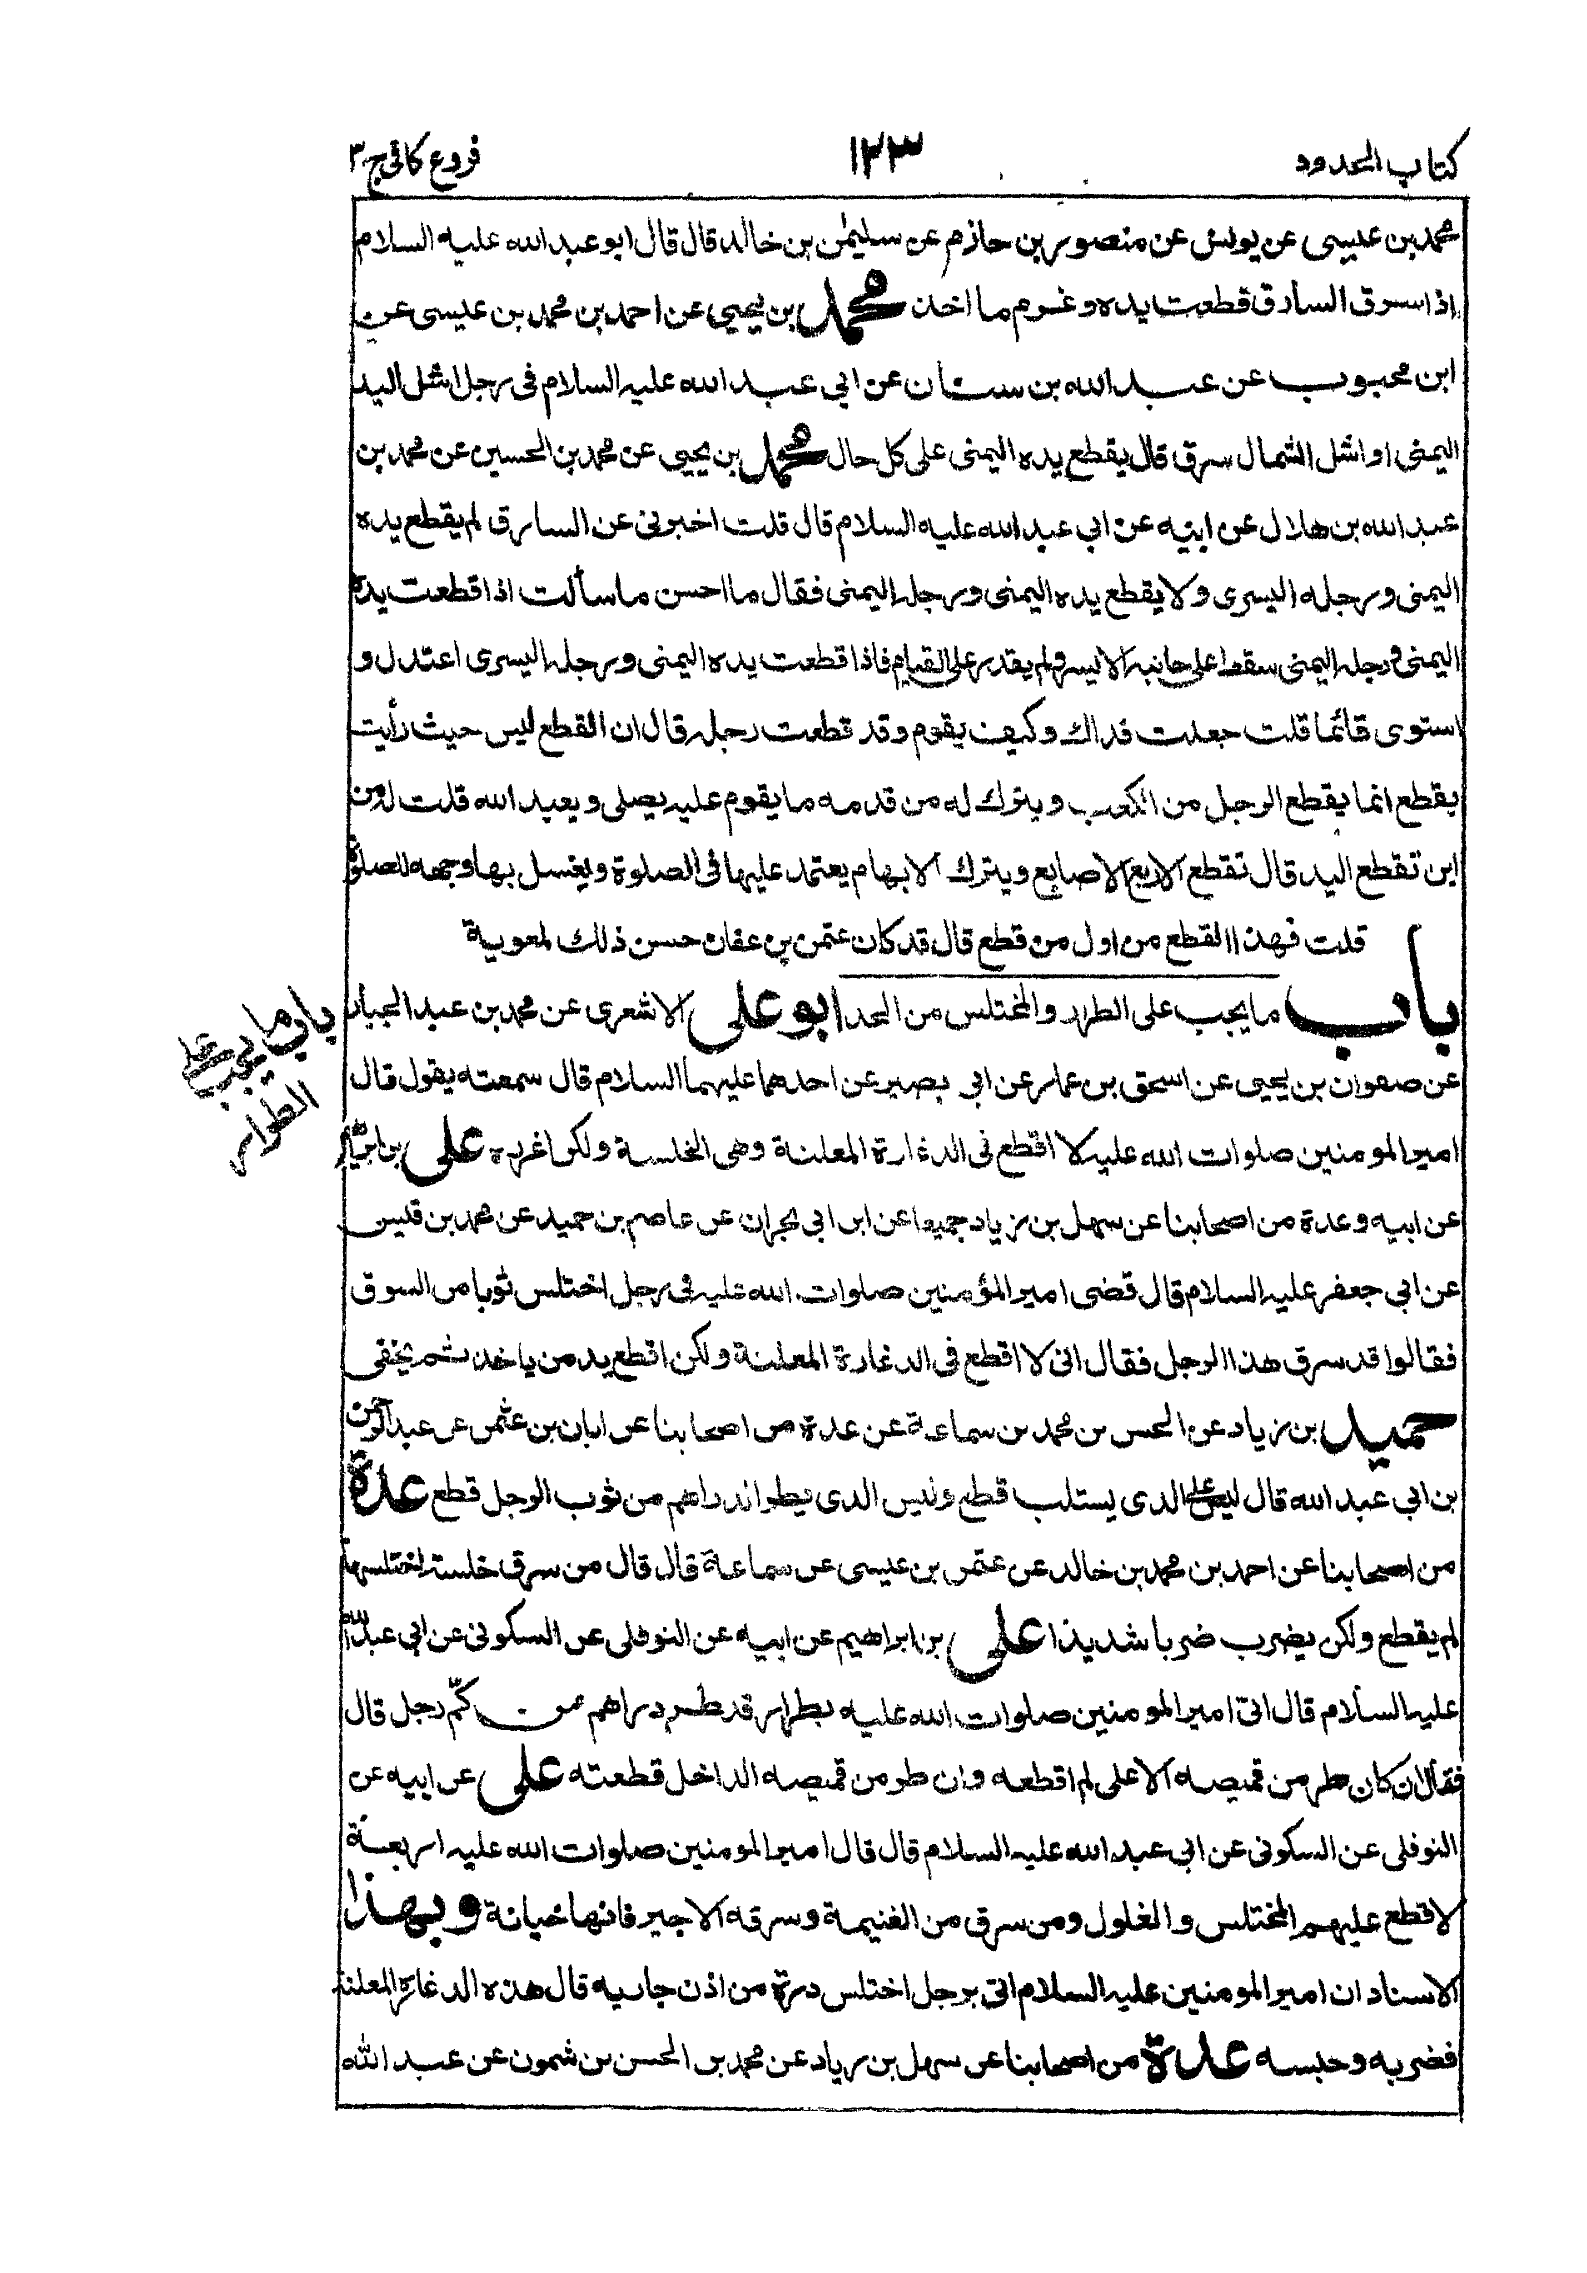 كتاب الحدود
١٢٣
فروع كافي ج ٣
محمد بن عيسى عن يونس عن منصور بن حازم عن سليمٰن بن خالد قال قال ابو عبد الله عليه السلام
اذا سرق السارق قطعت يده وغرم ما اخذ محمد بن يحيى عن احمد بن محمد بن عيسى عن
ابن محبوب عن عبد الله بن سنان عن ابي عبد الله عليه السلام في رجل اشل اليد
اليمنى او اشل الشمال سرق قال يقطع يده اليمنى على كل حال محمد بن يحيى عن محمد بن الحسين عن محمد بن
عبد الله بن هلال عن ابيه عن ابي عبد الله عليه السلام قال قلت اخبرني عن السارق لم يقطع يده
اليمنى ورجله اليسرى ولا يقطع يده اليمنى ورجله اليمنى فقال ما احسن ما سألت اذا قطعت يده
اليمنى ورجله اليمنى سقط على جانبه الايسر ولم يقدر على القيام فاذا قطعت يده اليمنى ورجله اليسرى اعتدل و
استوى قائما قلت جعلت فداك وكيف يقوم وقد قطعت رجله قال ان القطع ليس حيث رأيت
يقطع انما يقطع الرجل من الكعب ويترك له من قدمه ما يقوم عليه يصلي ويعبد الله قلت له من
اين تقطع اليد قال تقطع الاربع الاصابع ويترك الابهام يعتمد عليها في الصلوة ويغسل بها وجهه للصلوة
قلت فهذا القطع من اول من قطع قال قد كان عثمن بن عفان حسن ذلك لمعوية
باب ما يجب على الطرار والمختلس من الحد ابو علي الاشعرى عن محمد بن عبد الجبار
باب ما يجب على
الطرار
عن صفوان بن يحيى عن اسحق بن عمار عن ابي بصير عن احدهما عليهما السلام قال سمعته يقول قال
امير المومنين صلوات الله عليه لا اقطع في الدغارة المعلنة وهي الخلسة ولكن اغرره علي بن ابراهيم
عن ابيه وعدة من اصحابنا عن سهل بن زياد جميعا عن ابن ابي نجران عن عاصم بن حميد عن محمد بن قيس
عن ابي جعفر عليه السلام قال قضى امير المؤمنين صلوات الله عليه في رجل اختلس ثوبا من السوق
فقالوا قد سرق هذا الرجل فقال انى لا اقطع في الدغارة المعلنة ولكن اقطع يد من ياخذ ثم يخفى
حميد بن زياد عن الحسن بن محمد بن سماعة عن عدة من اصحابنا عن ابان بن عثمن عن عبد الرحمن
بن ابي عبد الله قال ليس على الذى يستلب قطع وليس الذى يطر الدراهم من ثوب الرجل قطع عدة
من اصحابنا عن احمد بن محمد بن خالد عن عثمن بن عيسى عن سماعة قال قال من سرق خلسة اختلسها
لم يقطع ولكن يضرب ضربا شديدا علي بن ابراهيم عن ابيه عن النوفلى عن السكونى عن ابي عبد الله
عليه السلام قال اتى امير المومنين صلوات الله عليه بطرار قد طر دراهم من كمّ رجل قال
فقال ان كان طر من قميصه الاعلى لم اقطعه وان طر من قميصه الداخل قطعته علي عن ابيه عن
النوفلى عن السكونى عن ابي عبد الله عليه السلام قال قال امير المومنين صلوات الله عليه اربعة
لا قطع عليهم المختلس والغلول ومن سرق من الغنيمة وسرقه الاجير فانها خيانة وبهذا
الاسناد ان امير المومنين عليه السلام اتى برجل اختلس درة من اذن جاريه قال هذه الدغارة المعلنة
فضربه وحبسه عدة من اصحابنا عن سهل بن زياد عن محمد بن الحسن بن شمون عن عبد الله